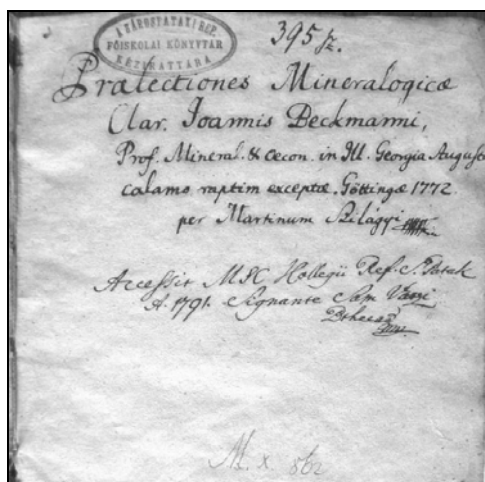 A SÁROSPATAKI REF.
FŐISKOLAI KÖNYVTÁR
KÉZIRATTÁRA
395 sz.
Prælectiones Mineralogicæ
Clar. Joannis Beckmanni,
Prof. Mineral. & œcon. in Ill. Georgia Augusta
calamo raptim exceptæ. Göttingæ 1772.
per Martinum Szilágyi
Accessit MSC Kollegii Ref. S. Patak
A. 1791. Signante Sam
M. x 862